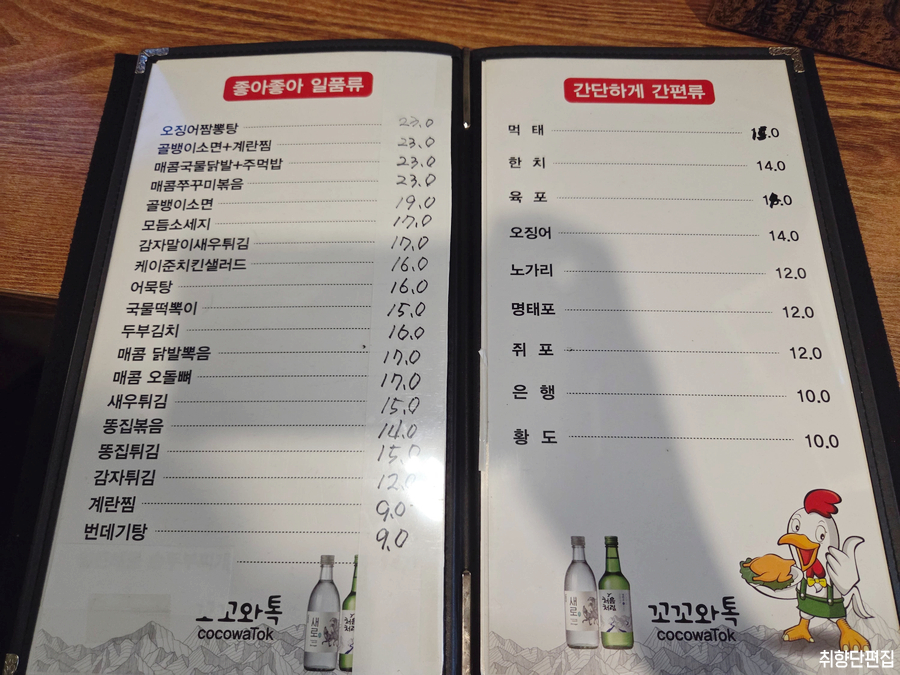 좋아좋아 일품류
오징어짬뽕탕 23.0
골뱅이소면+계란찜 23.0
매콤국물닭발+주먹밥 23.0
매콤쭈꾸미볶음 23.0
골뱅이소면 19.0
모듬소세지 17.0
감자말이새우튀김 17.0
케이준치킨샐러드 16.0
어묵탕 16.0
국물떡뽁이 15.0
두부김치 16.0
매콤 닭발뽁음 17.0
매콤 오돌뼈 17.0
새우튀김 15.0
똥집볶음 14.0
똥집튀김 15.0
감자튀김 12.0
계란찜 9.0
번데기탕 9.0
새로
처음처럼
꼬꼬와톡
cocowaTok
간단하게 간편류
먹 태
한 치 14.0
육 포
오징어 14.0
노가리 12.0
명태포 12.0
쥐 포 12.0
은 행 10.0
황 도 10.0
새로
처음처럼
꼬꼬와톡
cocowaTok
취향단편집